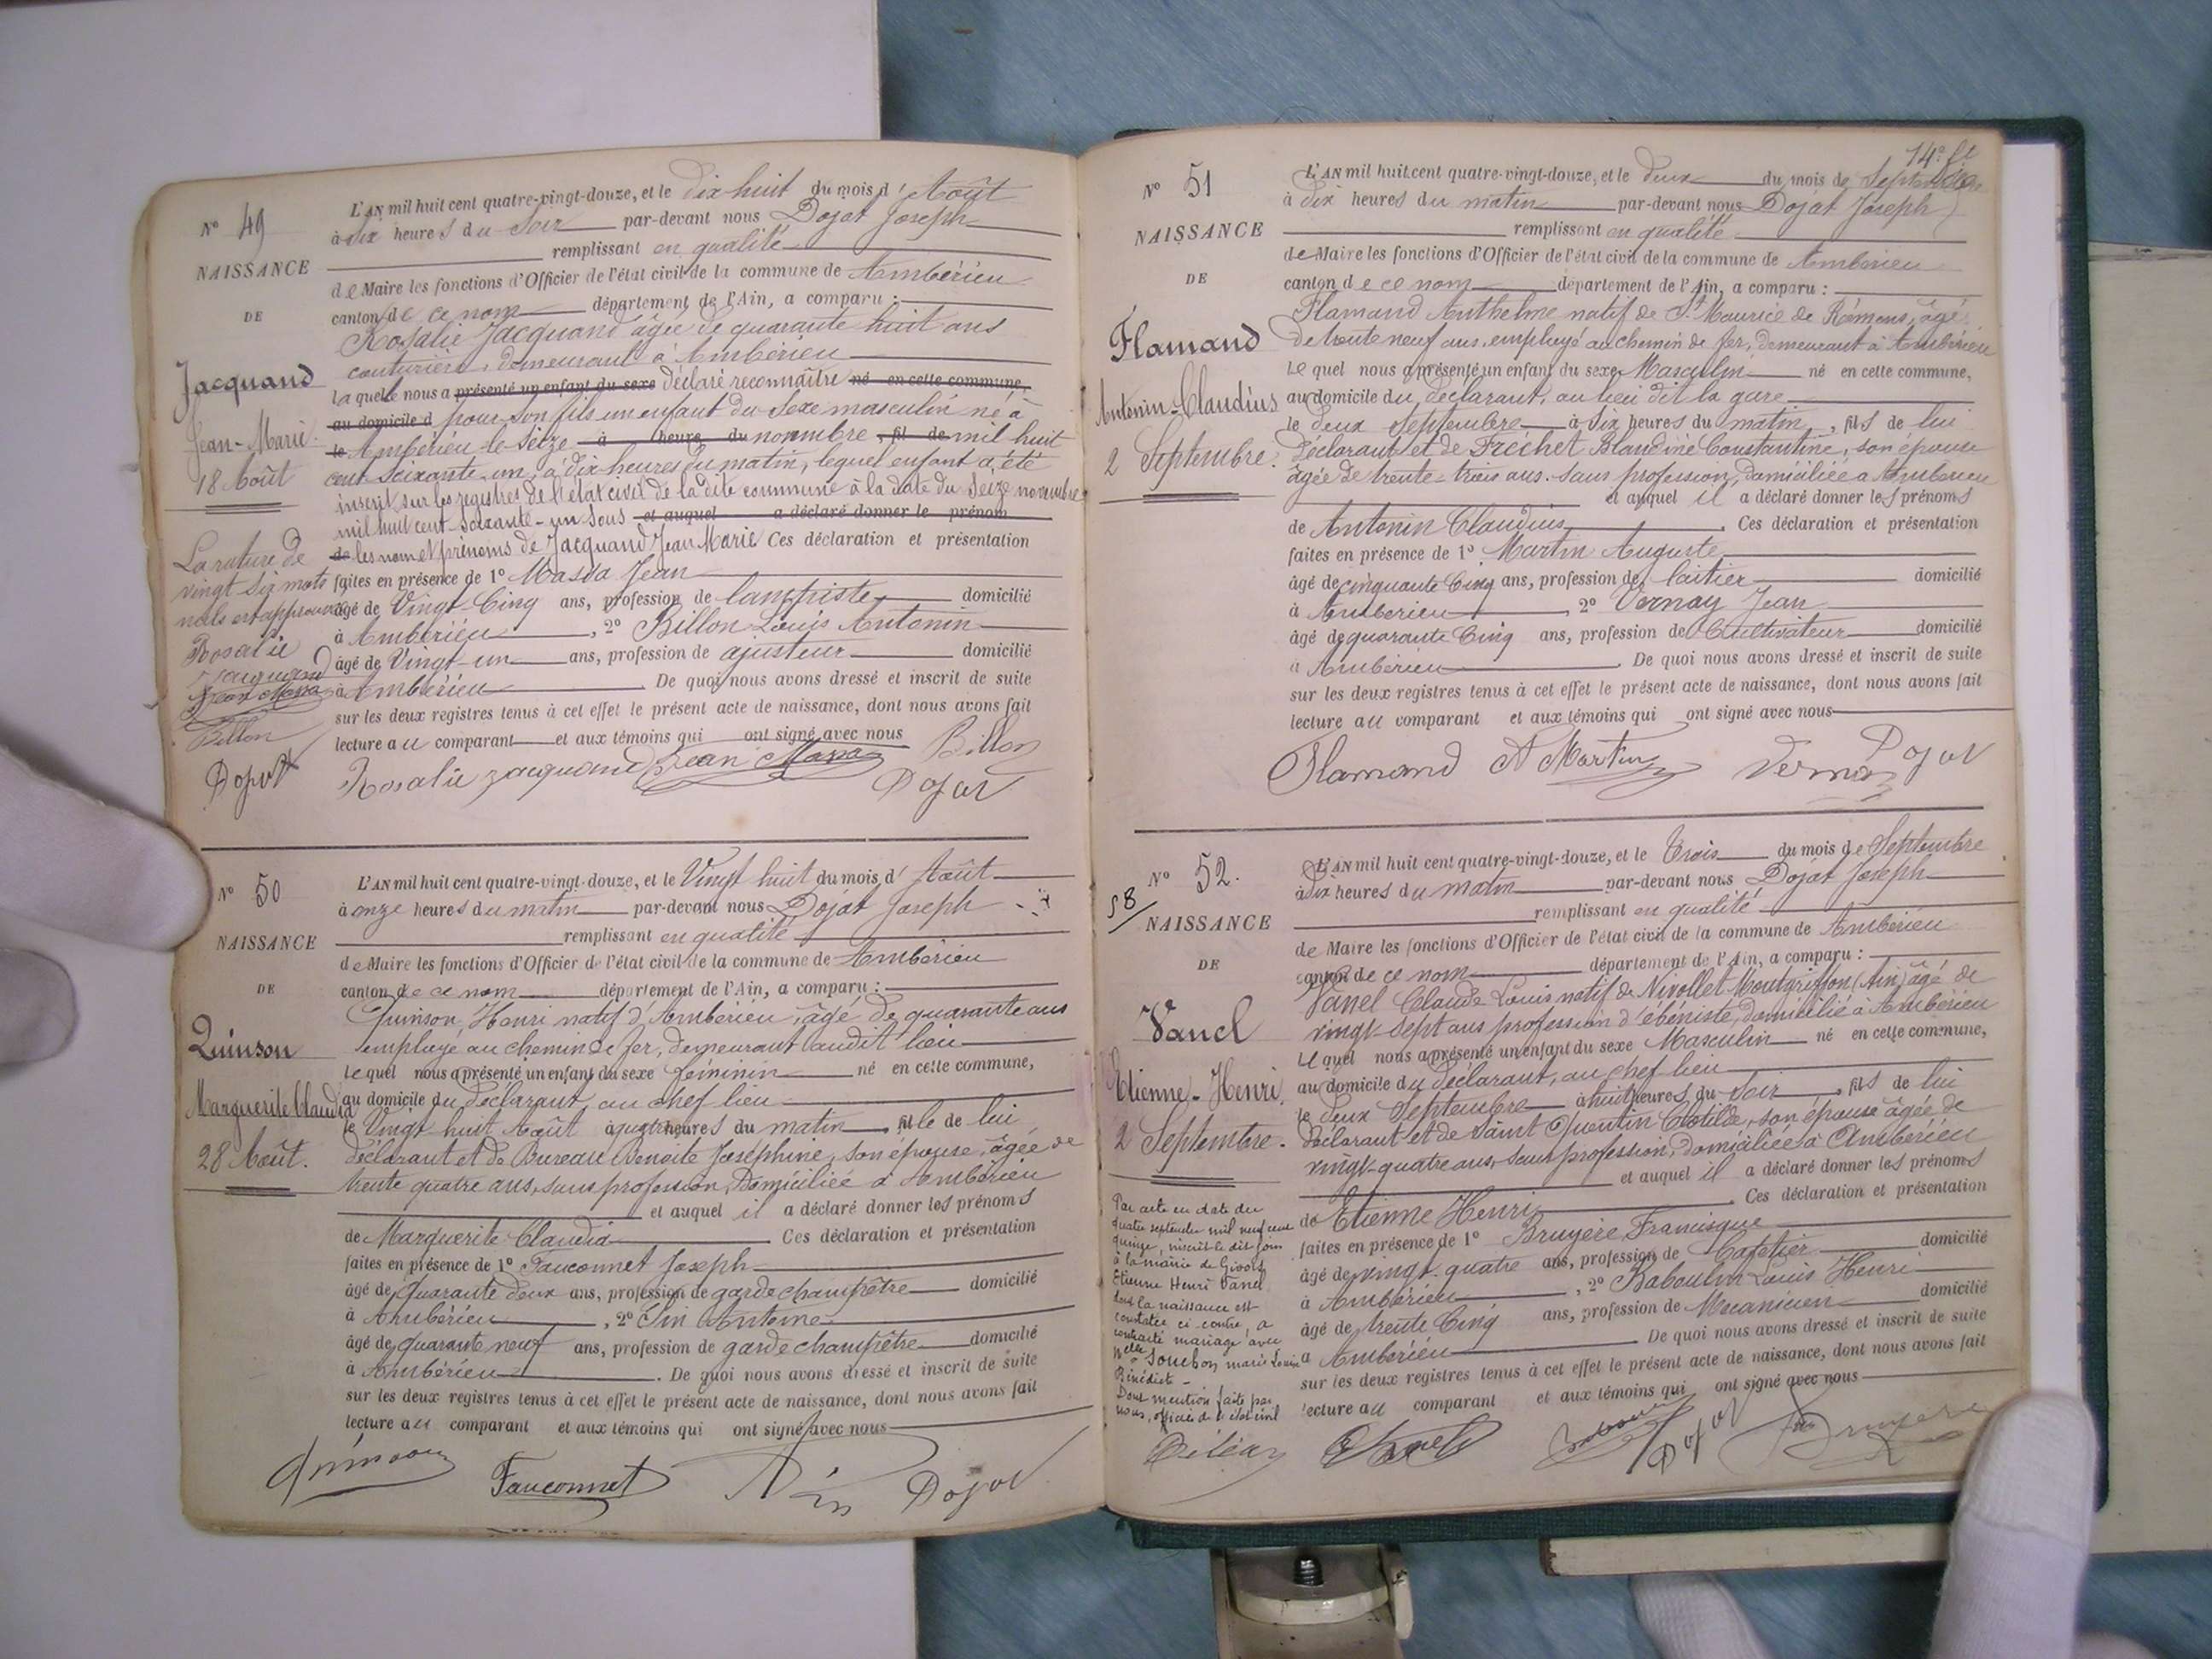 N° 49
NAISSANCE
DE
Jacquand
Jean-Marie
18 Août
La rature de
vingt six mots
nuls est approuvée
Rosalie
Jacquand
Jean Massa
Billon
Dojat
L'AN mil huit cent quatre-vingt-douze, et le dix huit du mois d'Août
à six heures du Soir par-devant nous Dojat Joseph
remplissant en qualité
de Maire les fonctions d'Officier de l'état civil de la commune de Ambérieu
canton de ce nom département de l'Ain, a comparu :
Rosalie Jacquand âgée de quarante huit ans
couturière, demeurant à Ambérieu
la quelle nous a présenté un enfant du sexe déclaré reconnaître né en cette commune,
au domicile d pour son fils un enfant du sexe masculin né à
le Ambérieu le Seize à heure du novembre , fil de mil huit
cent soixante-un, à dix heures du matin, lequel enfant a été
inscrit sur les registres de l'état civil de la dite commune à la date du Seize novembre
mil huit cent soixante-un sous et auquel a déclaré donner le prénom
de les nom et prénoms de Jacquand Jean Marie Ces déclaration et présentation
faites en présence de 1° Massa Jean
âgé de Vingt-Cinq ans, profession de lampiste domicilié
à Ambérieu , 2° Billon Louis Antonin
âgé de Vingt-un ans, profession de ajusteur domicilié
à Ambérieu . De quoi nous avons dressé et inscrit de suite
sur les deux registres tenus à cet effet le présent acte de naissance, dont nous avons fait
lecture au comparant et aux témoins qui ont signé avec nous
Rosalie jacquand Jean Massa Billon
Dojat
N° 50
NAISSANCE
DE
Quinson
Marguerite Claudia
28 Août.
L'AN mil huit cent quatre-vingt-douze, et le Vingt huit du mois d'Août
à onze heures du matin par-devant nous Dojat Joseph
remplissant en qualité
de Maire les fonctions d'Officier de l'état civil de la commune de Ambérieu
canton de ce nom département de l'Ain, a comparu :
Quinson, Henri natif d'Ambérieu, âgé de quarante ans
employé au chemin de fer, demeurant audit lieu
le quel nous a présenté un enfant du sexe féminin né en cette commune,
au domicile du déclarant, au chef lieu
le Vingt huit Août à quatre heures du matin , fille de lui
déclarant et de Bureau Benoite Joséphine, son épouse, âgée de
trente quatre ans, sans profession, domiciliée à Ambérieu
et auquel il a déclaré donner les prénoms
de Marguerite Claudia Ces déclaration et présentation
faites en présence de 1° Fauconnet Joseph
âgé de Quarante deux ans, profession de garde champêtre domicilié
à Ambérieu , 2° Sin Antoine
âgé de quarante neuf ans, profession de garde champêtre domicilié
à Ambérieu . De quoi nous avons dressé et inscrit de suite
sur les deux registres tenus à cet effet le présent acte de naissance, dont nous avons fait
lecture au comparant et aux témoins qui ont signé avec nous
Quinson Fauconnet Sin Dojat
14e ft
N° 51
NAISSANCE
DE
Flamand
Antonin-Claudius
2 Septembre.
L'AN mil huit cent quatre-vingt-douze, et le deux du mois de Septembre
à dix heures du matin par-devant nous Dojat Joseph
remplissant en qualité
de Maire les fonctions d'Officier de l'état civil de la commune de Ambérieu
canton de ce nom département de l'Ain, a comparu :
Flamand Anthelme natif de St Maurice de Rémens, âgé
de trente neuf ans, employé au chemin de fer, demeurant à Ambérieu
le quel nous a présenté un enfant du sexe Masculin né en cette commune,
au domicile du déclarant, au lieu dit la gare
le deux septembre à six heures du matin , fils de lui
déclarant et de Fréchet Blandine Constantine, son épouse
âgée de trente-trois ans, sans profession, domiciliée à Ambérieu
et auquel il a déclaré donner les prénoms
de Antonin Claudius Ces déclaration et présentation
faites en présence de 1° Martin Auguste
âgé de cinquante Cinq ans, profession de laitier domicilié
à Ambérieu , 2° Vernay Jean
âgé de quarante Cinq ans, profession de Cultivateur domicilié
à Ambérieu . De quoi nous avons dressé et inscrit de suite
sur les deux registres tenus à cet effet le présent acte de naissance, dont nous avons fait
lecture au comparant et aux témoins qui ont signé avec nous
Flamand A Martin Vernay Dojat
N° 52.
58
NAISSANCE
DE
Vanel
Etienne-Henri.
2 Septembre.
Par acte en date du
quatre septembre mil neuf cent
quinze, inscrit le dit jour
à la mairie de Givors
Etienne Henri Vanel
dont la naissance est
constatée ci contre, a
contracté mariage avec
Melle Souchon marie Louise
Bénédiste -
Dont mention faite par
nous, officier de l'état civil
L'AN mil huit cent quatre-vingt-douze, et le Trois du mois de Septembre
à dix heures du matin par-devant nous Dojat Joseph
remplissant en qualité
de Maire les fonctions d'Officier de l'état civil de la commune de Ambérieu
canton de ce nom département de l'Ain, a comparu :
Vanel Claude Louis natif de Nivollet-Montgriffon (Ain) âgé de
vingt-sept ans profession d'ébéniste, domicilié à Ambérieu
le quel nous a présenté un enfant du sexe Masculin né en cette commune,
au domicile du déclarant, au chef lieu
le deux Septembre à huit heures du soir , fils de lui
déclarant et de Saint Quentin Clotilde, son épouse âgée de
vingt-quatre ans, sans profession, domiciliée à Ambérieu
et auquel il a déclaré donner les prénoms
de Etienne Henri Ces déclaration et présentation
faites en présence de 1° Bruyère Francisque
âgé de vingt-quatre ans, profession de Cafetier domicilié
à Ambérieu , 2° Baboulin Louis Henri
âgé de trente Cinq ans, profession de Mécanicien domicilié
à Ambérieu . De quoi nous avons dressé et inscrit de suite
sur les deux registres tenus à cet effet le présent acte de naissance, dont nous avons fait
lecture au comparant et aux témoins qui ont signé avec nous
Vanel Baboulin Dojat Bruyere